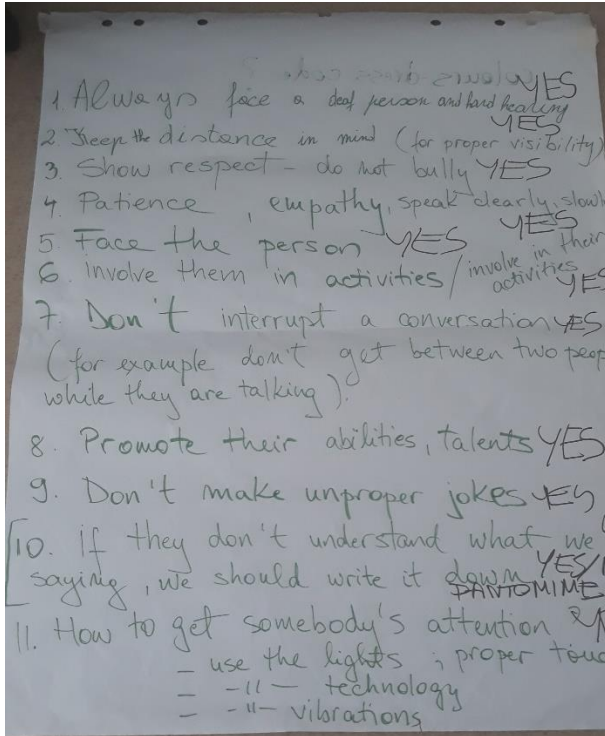 YES
1. Always face a deaf person and hard hearing
YES
2. Keep the distance in mind (for proper visibility)
3. Show respect - do not bully YES
4. Patience, empathy, speak clearly, slowl
YES
5. Face the person YES
6. involve them in activities / involve in their activities YES
7. Don't interrupt a conversation YES
(for example don't get between two peop
while they are talking).
8. Promote their abilities, talents YES
9. Don't make unproper jokes YES
10. if they don't understand what we
saying, we should write it down YES/
PANTOMIME
11. How to get somebody's attention ?
- use the lights ; proper touc
- -"- technology
- -"- vibrations